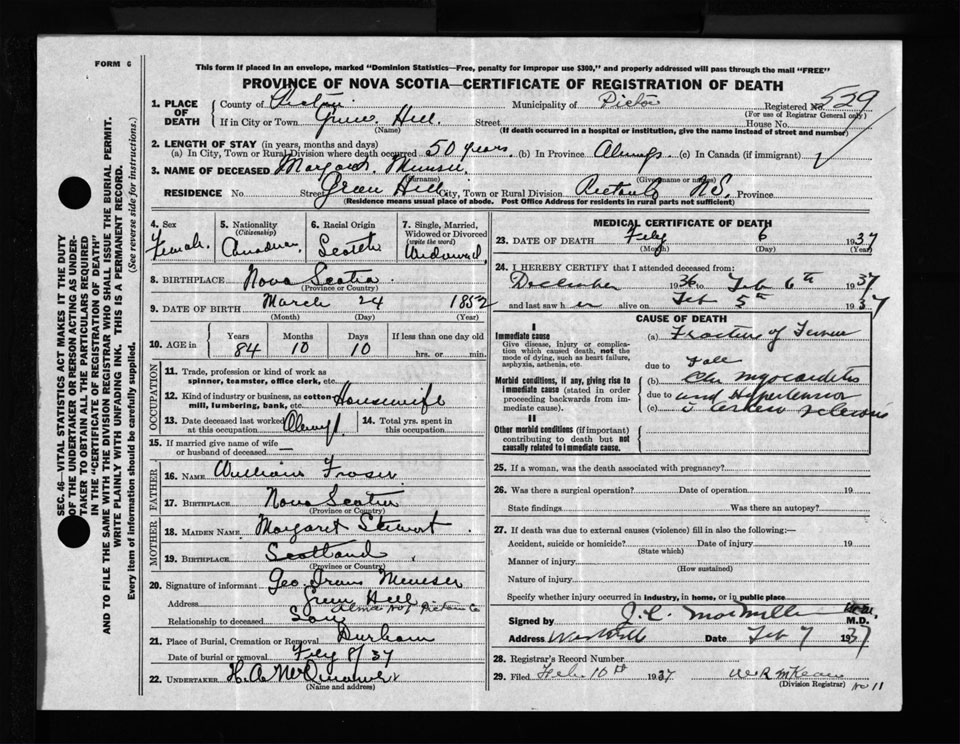 FORM 6
This form if placed in an envelope, marked "Dominion Statistics—Free, penalty for improper use $300," and properly addressed will pass through the mail "FREE"
PROVINCE OF NOVA SCOTIA—CERTIFICATE OF REGISTRATION OF DEATH
1. PLACE OF DEATH
County of Pictou Municipality of Pictou Registered No. 529
(For use of Registrar General only)
If in City or Town Green Hill Street House No.
(Name) (If death occurred in a hospital or institution, give the name instead of street and number)
2. LENGTH OF STAY (in years, months and days)
(a) In City, Town or Rural Division where death occurred 50 years. (b) In Province Always (c) In Canada (if immigrant)
3. NAME OF DECEASED Margaret
(Surname) (Given name or names)
RESIDENCE No. Street Green Hill City, Town or Rural Division Pictou Co N.S. Province
(Residence means usual place of abode. Post Office Address for residents in rural parts not sufficient)
4. Sex
Female
5. Nationality
(Citizenship)
Canadian
6. Racial Origin
Scotch
7. Single, Married, Widowed or Divorced
(write the word)
Widowed
8. BIRTHPLACE Nova Scotia
(Province or Country)
9. DATE OF BIRTH March 24 1852
(Month) (Day) (Year)
10. AGE in
Years Months Days If less than one day old
84 10 10 hrs. or min.
OCCUPATION
11. Trade, profession or kind of work as
spinner, teamster, office clerk, etc.
12. Kind of industry or business, as cotton
mill, lumbering, bank, etc. Housewife
13. Date deceased last worked
at this occupation
14. Total yrs. spent in
this occupation
15. If married give name of wife
or husband of deceased —
FATHER
16. NAME William Fraser
17. BIRTHPLACE Nova Scotia
(Province or Country)
MOTHER
18. MAIDEN NAME Margaret Stewart
19. BIRTHPLACE Scotland
(Province or Country)
20. Signature of informant Geo.
Address Green Hill
Alma Pictou Co
Relationship to deceased Son
21. Place of Burial, Cremation or Removal Durham
Date of burial or removal Feby 8/37
22. UNDERTAKER H. A.
(Name and address)
MEDICAL CERTIFICATE OF DEATH
23. DATE OF DEATH Feby 6 1937
(Month) (Day) (Year)
24. I HEREBY CERTIFY that I attended deceased from:
December 1936 to Feb 6th 1937
and last saw her alive on Feb 5th 1937
CAUSE OF DEATH
I
Immediate cause
Give disease, injury or complication which caused death, not the mode of dying, such as heart failure, asphyxia, asthenia, etc.
(a) Fracture of Femur
due to Fall
Morbid conditions, if any, giving rise to immediate cause (stated in order proceeding backwards from immediate cause).
(b) Chr Myocarditis
due to and Hypertension
(c) Arterio sclerosis
II
Other morbid conditions (if important) contributing to death but not causally related to immediate cause.
25. If a woman, was the death associated with pregnancy?
26. Was there a surgical operation? Date of operation 19
State findings Was there an autopsy?
27. If death was due to external causes (violence) fill in also the following:—
Accident, suicide or homicide? Date of injury 19
(State which)
Manner of injury
(How sustained)
Nature of injury
Specify whether injury occurred in industry, in home, or in public place
Signed by J. C. MacMillan M.D.
Address Westville Date Feb 7 1937
28. Registrar's Record Number
29. Filed Feb. 10th 1937 W R McKean
(Division Registrar)
No 11
SEC. 46—VITAL STATISTICS ACT MAKES IT THE DUTY
OF THE UNDERTAKER OR PERSON ACTING AS UNDER-
TAKER TO OBTAIN ALL THE PARTICULARS REQUIRED
IN THE "CERTIFICATE OF REGISTRATION OF DEATH"
AND TO FILE THE SAME WITH THE DIVISION REGISTRAR WHO SHALL ISSUE THE BURIAL PERMIT.
WRITE PLAINLY WITH UNFADING INK. THIS IS A PERMANENT RECORD.
Every item of information should be carefully supplied. (See reverse side for instructions.)